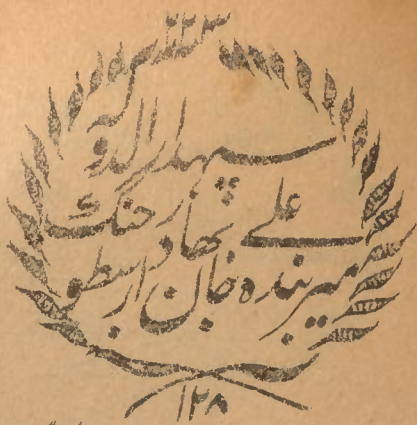 سپهدار الدو
علے بهادر جنگ
میر بنده جان ارسطو
۱۲۸